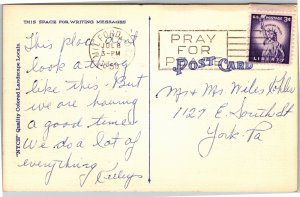 THIS SPACE FOR WRITING MESSAGES
This place
look a thing
like this. But
we are having
a good time.
We do a lot of
everything.
JUL 8
3-PM
PRAY
FOR
POST CARD
U.S. 3¢
LIBERTY
Mr & Mrs Miles
1127 E. South St
York. Pa
Quality Colored Landscape Locals